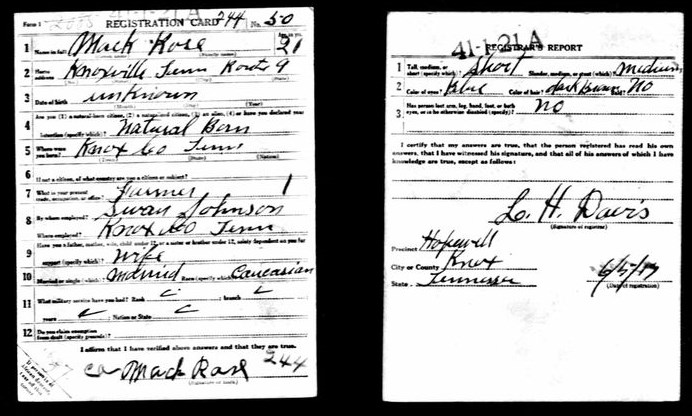 Form 1 REGISTRATION CARD 244 No. 50
1 Name in full Mack Rose 21
2 Home address Knoxville Tenn Route 9
3 Date of birth unknown
(Month) (Day) (Year)
4 Are you (1) a natural-born citizen, (2) a naturalized citizen, (3) an alien, (4) or have you declared your
intention (specify which)? Natural Born
5 Where were you born? Knox Co Tenn
(Town) (State) (Nation)
6 If not a citizen, of what country are you a citizen or subject?
7 What is your present trade, occupation, or office? Farmer 1
8 By whom employed? Swan Johnson
Where employed? Knox Co Tenn
9 Have you a father, mother, wife, child under 12, or a sister or brother under 12, solely dependent on you for
support (specify which)? Wife
10 Married or single (which)? Married Race (specify which)? Caucasian
11 What military service have you had? Rank ; branch
years ; Nation or State
12 Do you claim exemption from draft (specify grounds)?
I affirm that I have verified above answers and that they are true.
Mack Rose 244
(Signature or mark)
41-1-21 A
REGISTRAR'S REPORT
1 Tall, medium, or short (specify which)? Short Slender, medium, or stout (which)? medium
2 Color of eyes? Blue Color of hair? dark brown Bald? No
3 Has person lost arm, leg, hand, foot, or both eyes, or is he otherwise disabled (specify)? No
I certify that my answers are true, that the person registered has read his own
answers, that I have witnessed his signature, and that all of his answers of which I have
knowledge are true, except as follows:
L. H. Davis
(Signature of registrar)
Precinct Hopewell
City or County Knox
State Tennessee 6/5/17
(Date of registration)